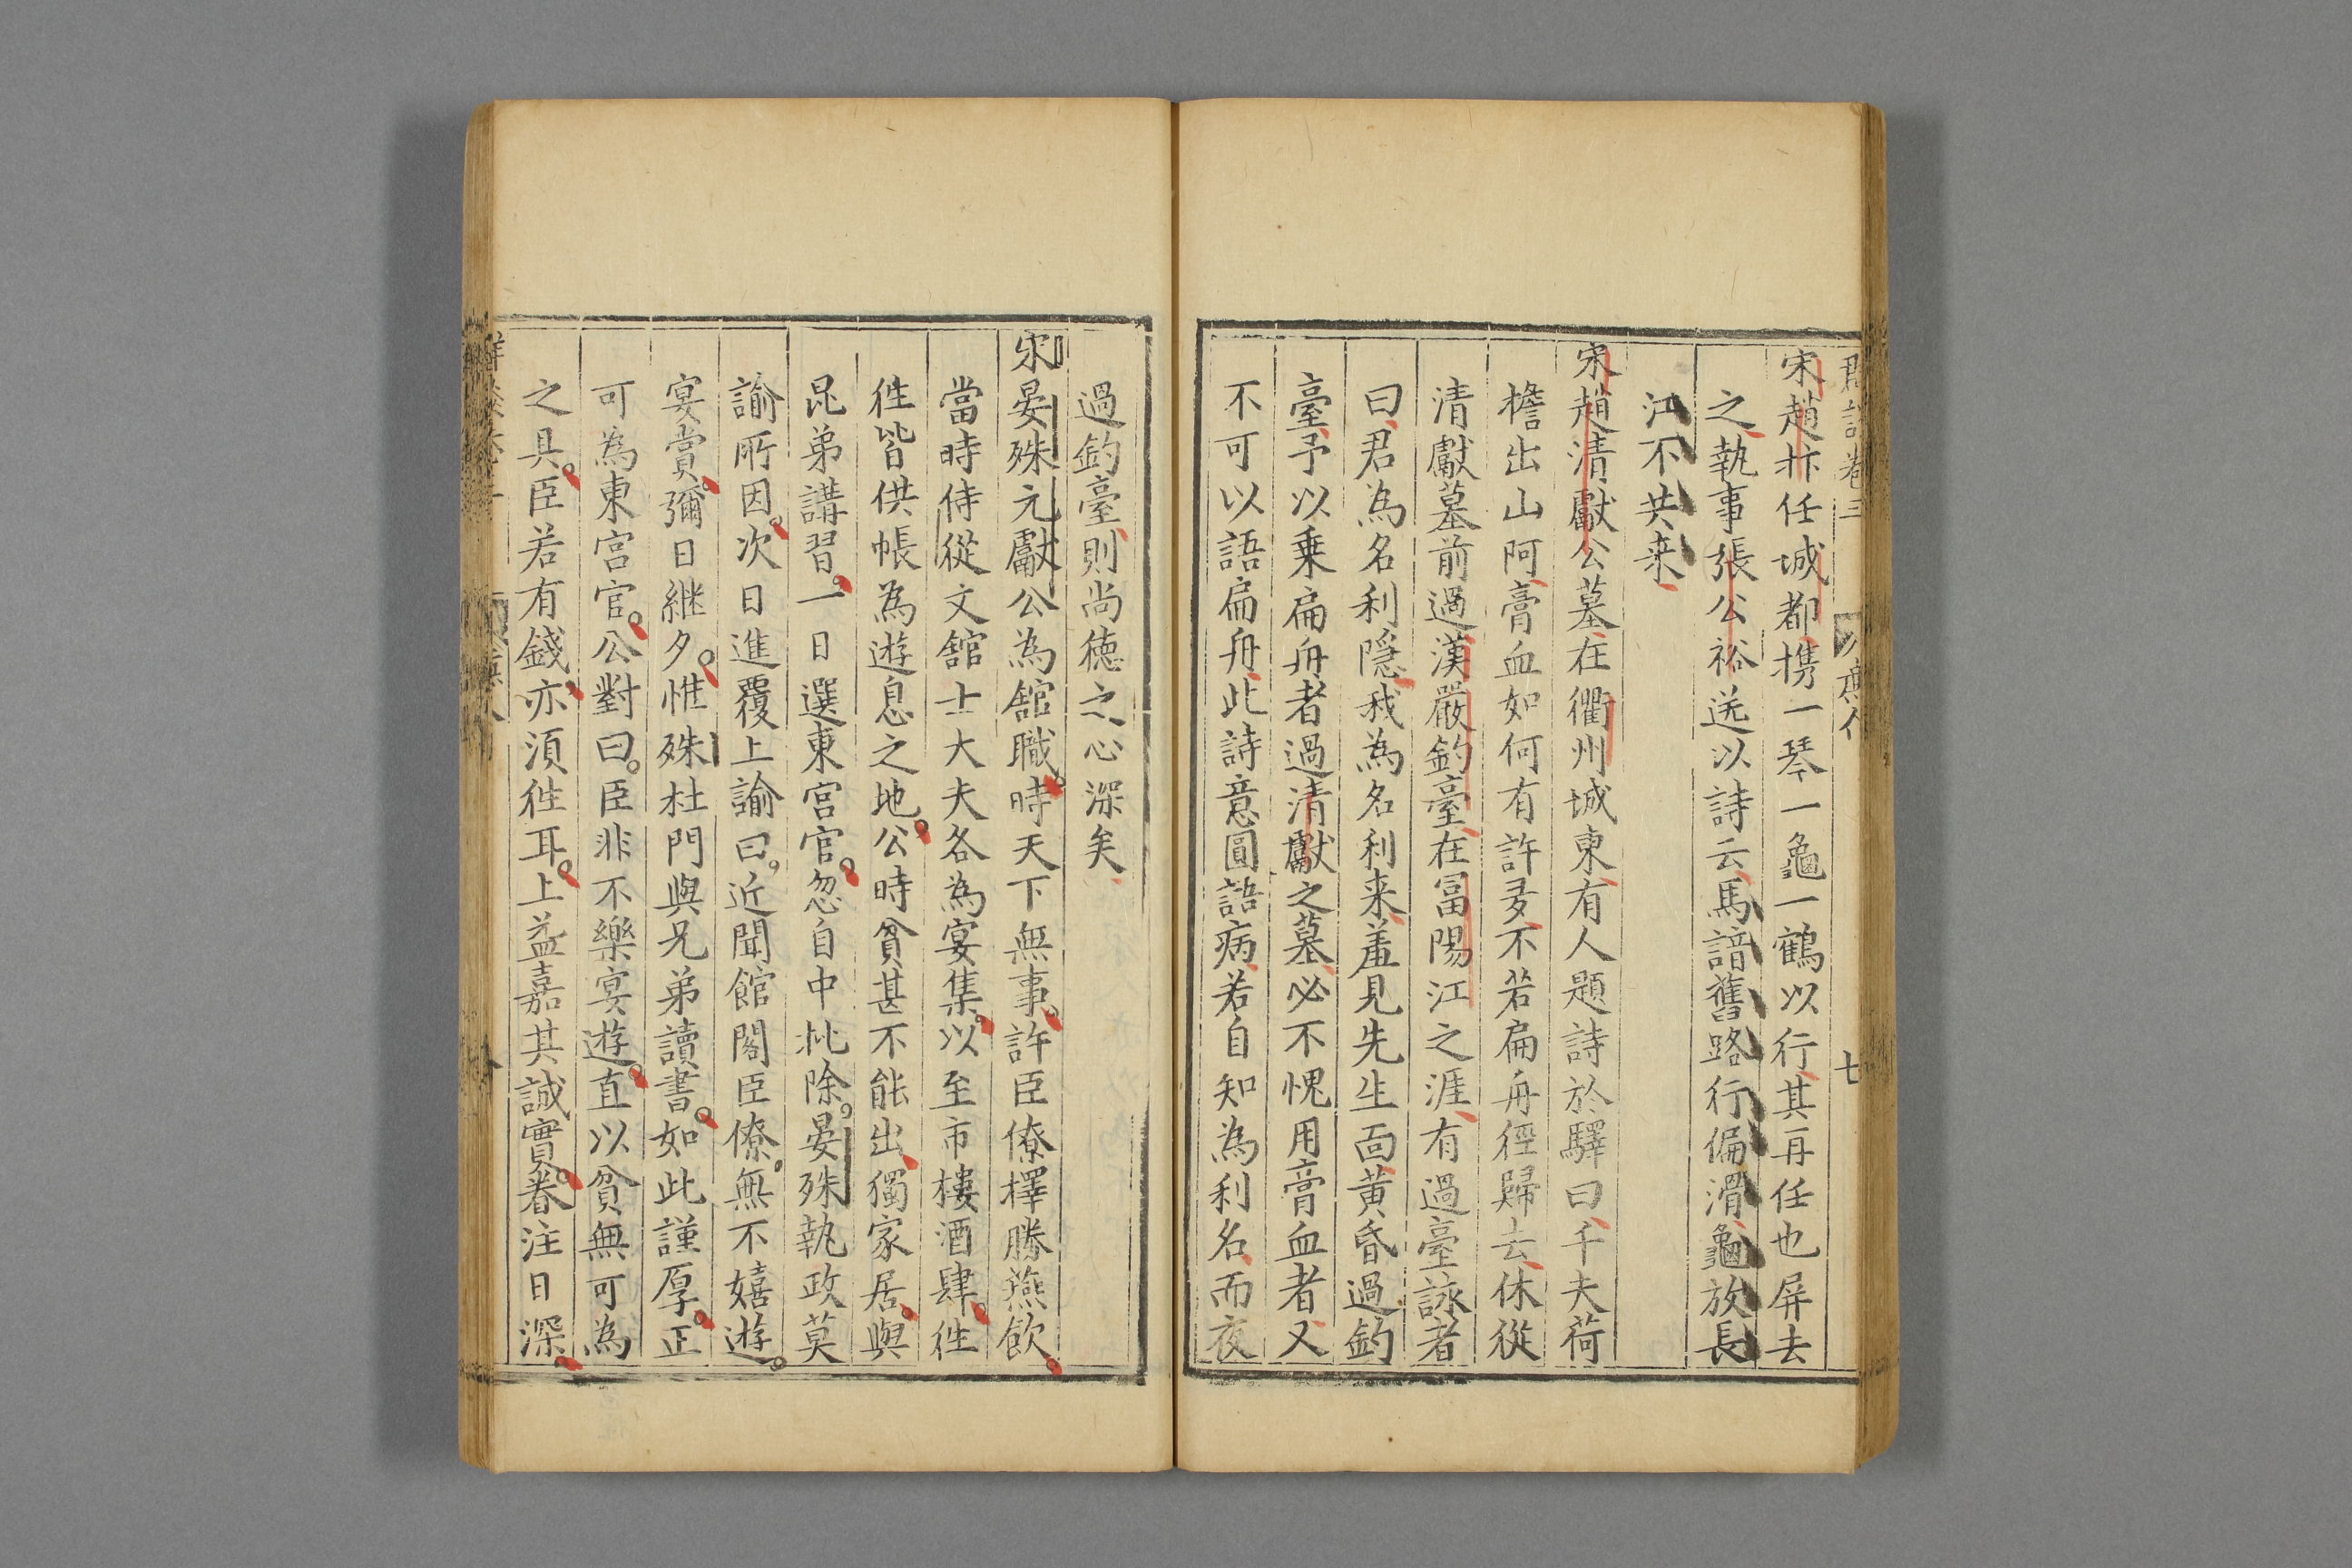 宋趙抃任城都携一琴一龜一鶴以行其再任也屏去
之執事張公裕送以詩云馬諳舊路行偏滑龜放長
江不共来
宋趙清獻公墓在衢州城東有人題詩於驛曰千夫荷
檐出山阿膏血如何有許多不若扁舟徑歸去休從
清獻墓前過漢嚴釣臺在富陽江之涯有過臺詠者
曰君為名利隱我為名利来羞見先生面黄昏過釣
臺予以乗扁舟者過清獻之墓必不愧用膏血者又
不可以語扁舟此詩意圓語病若自知為利名而夜
過釣臺則尚徳之心深矣
宋晏殊元獻公為舘職時天下無事許臣僚擇勝燕飲
當時侍從文舘士大夫各為宴集以至市樓酒肆徃
徃皆供帳為遊息之地公時貧甚不能出獨家居與
昆弟講習一日選東宫官忽自中批除晏殊執政莫
諭所因次日進覆上諭曰近聞館閣臣僚無不嬉遊
宴賞彌日継夕惟殊杜門與兄弟讀書如此謹厚正
可為東宫官公對曰臣非不樂宴遊直以貧無可為
之具臣若有錢亦須徃耳上益嘉其誠實眷注日深